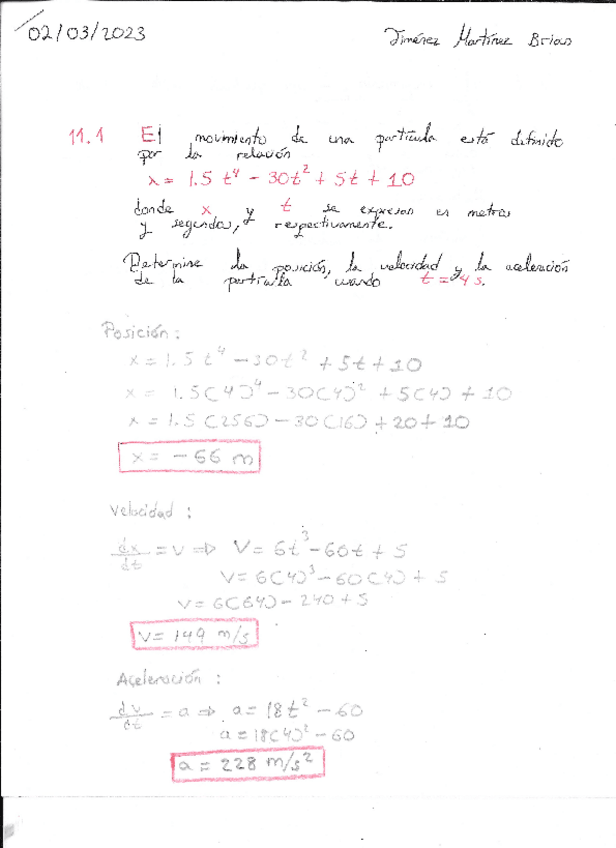 02/03/2023
Jiménez Martínez Brian
11.1 El movimiento de una partícula está definido
por la relación
x = 1.5 t⁴ - 30t² + 5t + 10
donde x y t se expresan en metros
y segundos, respectivamente.
Determine la posición, la velocidad y la aceleración
de la partícula, cuando t = 4 s.
Posición:
x = 1.5 t⁴ - 30t² + 5t + 10
x = 1.5(4)⁴ - 30(4)² + 5(4) + 10
x = 1.5(256) - 30(16) + 20 + 10
x = -66 m
Velocidad:
dx/dt = v ⇒ v = 6t³ - 60t + 5
v = 6(4)³ - 60(4) + 5
v = 6(64) - 240 + 5
v = 149 m/s
Aceleración:
dv/dt = a ⇒ a = 18t² - 60
a = 18(4)² - 60
a = 228 m/s²